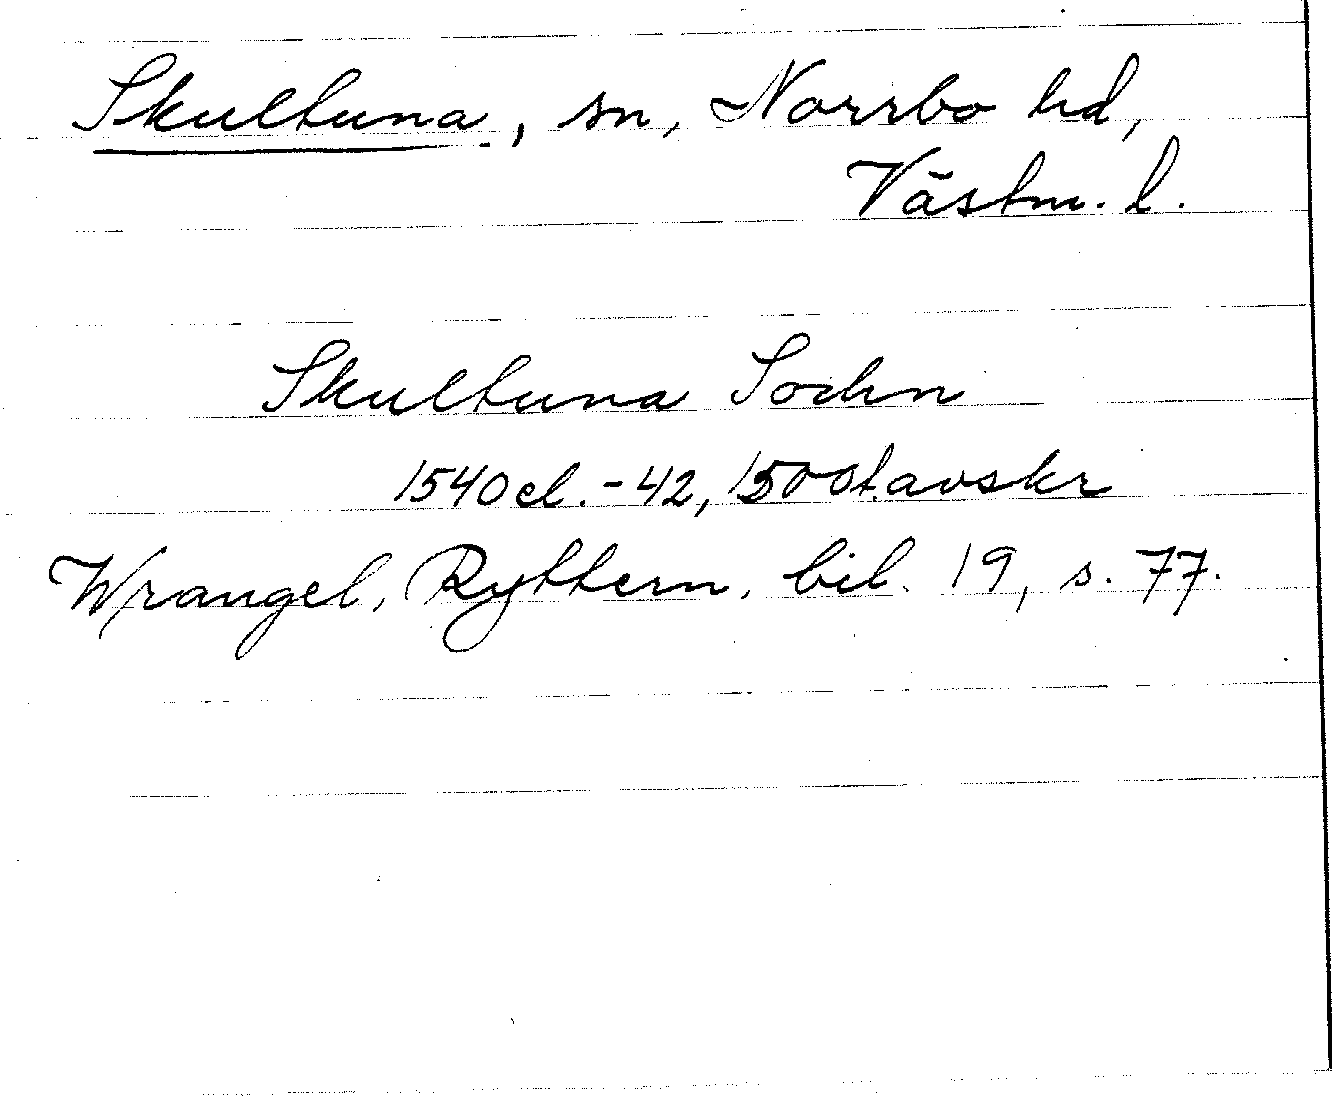 Skultuna, sn, Norrbo hd,
Västm. l.
Skultuna Sochn
1540 el. -42, 1500t.avskr
Wrangel, Ryttern, bil. 19, s. 77.